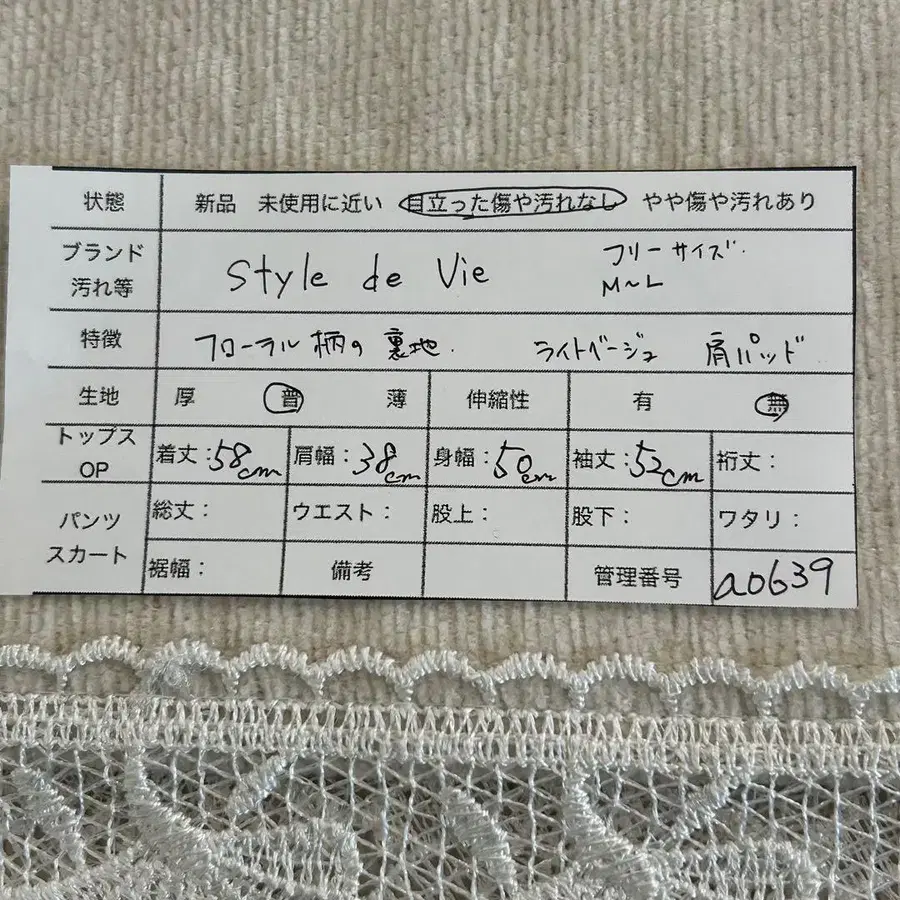 状態 新品 未使用に近い 目立った傷や汚れなし やや傷や汚れあり
ブランド 汚れ等 Style de Vie フリーサイズ. M~L
特徴 フローラル柄の裏地. ライトベージュ 肩パッド
生地 厚 普 薄 伸縮性 有 無
トップス OP 着丈:58cm 肩幅:38cm 身幅:50cm 袖丈:52cm 裄丈:
パンツ スカート 総丈: ウエスト: 股上: 股下: ワタリ:
裾幅: 備考 管理番号 a0639